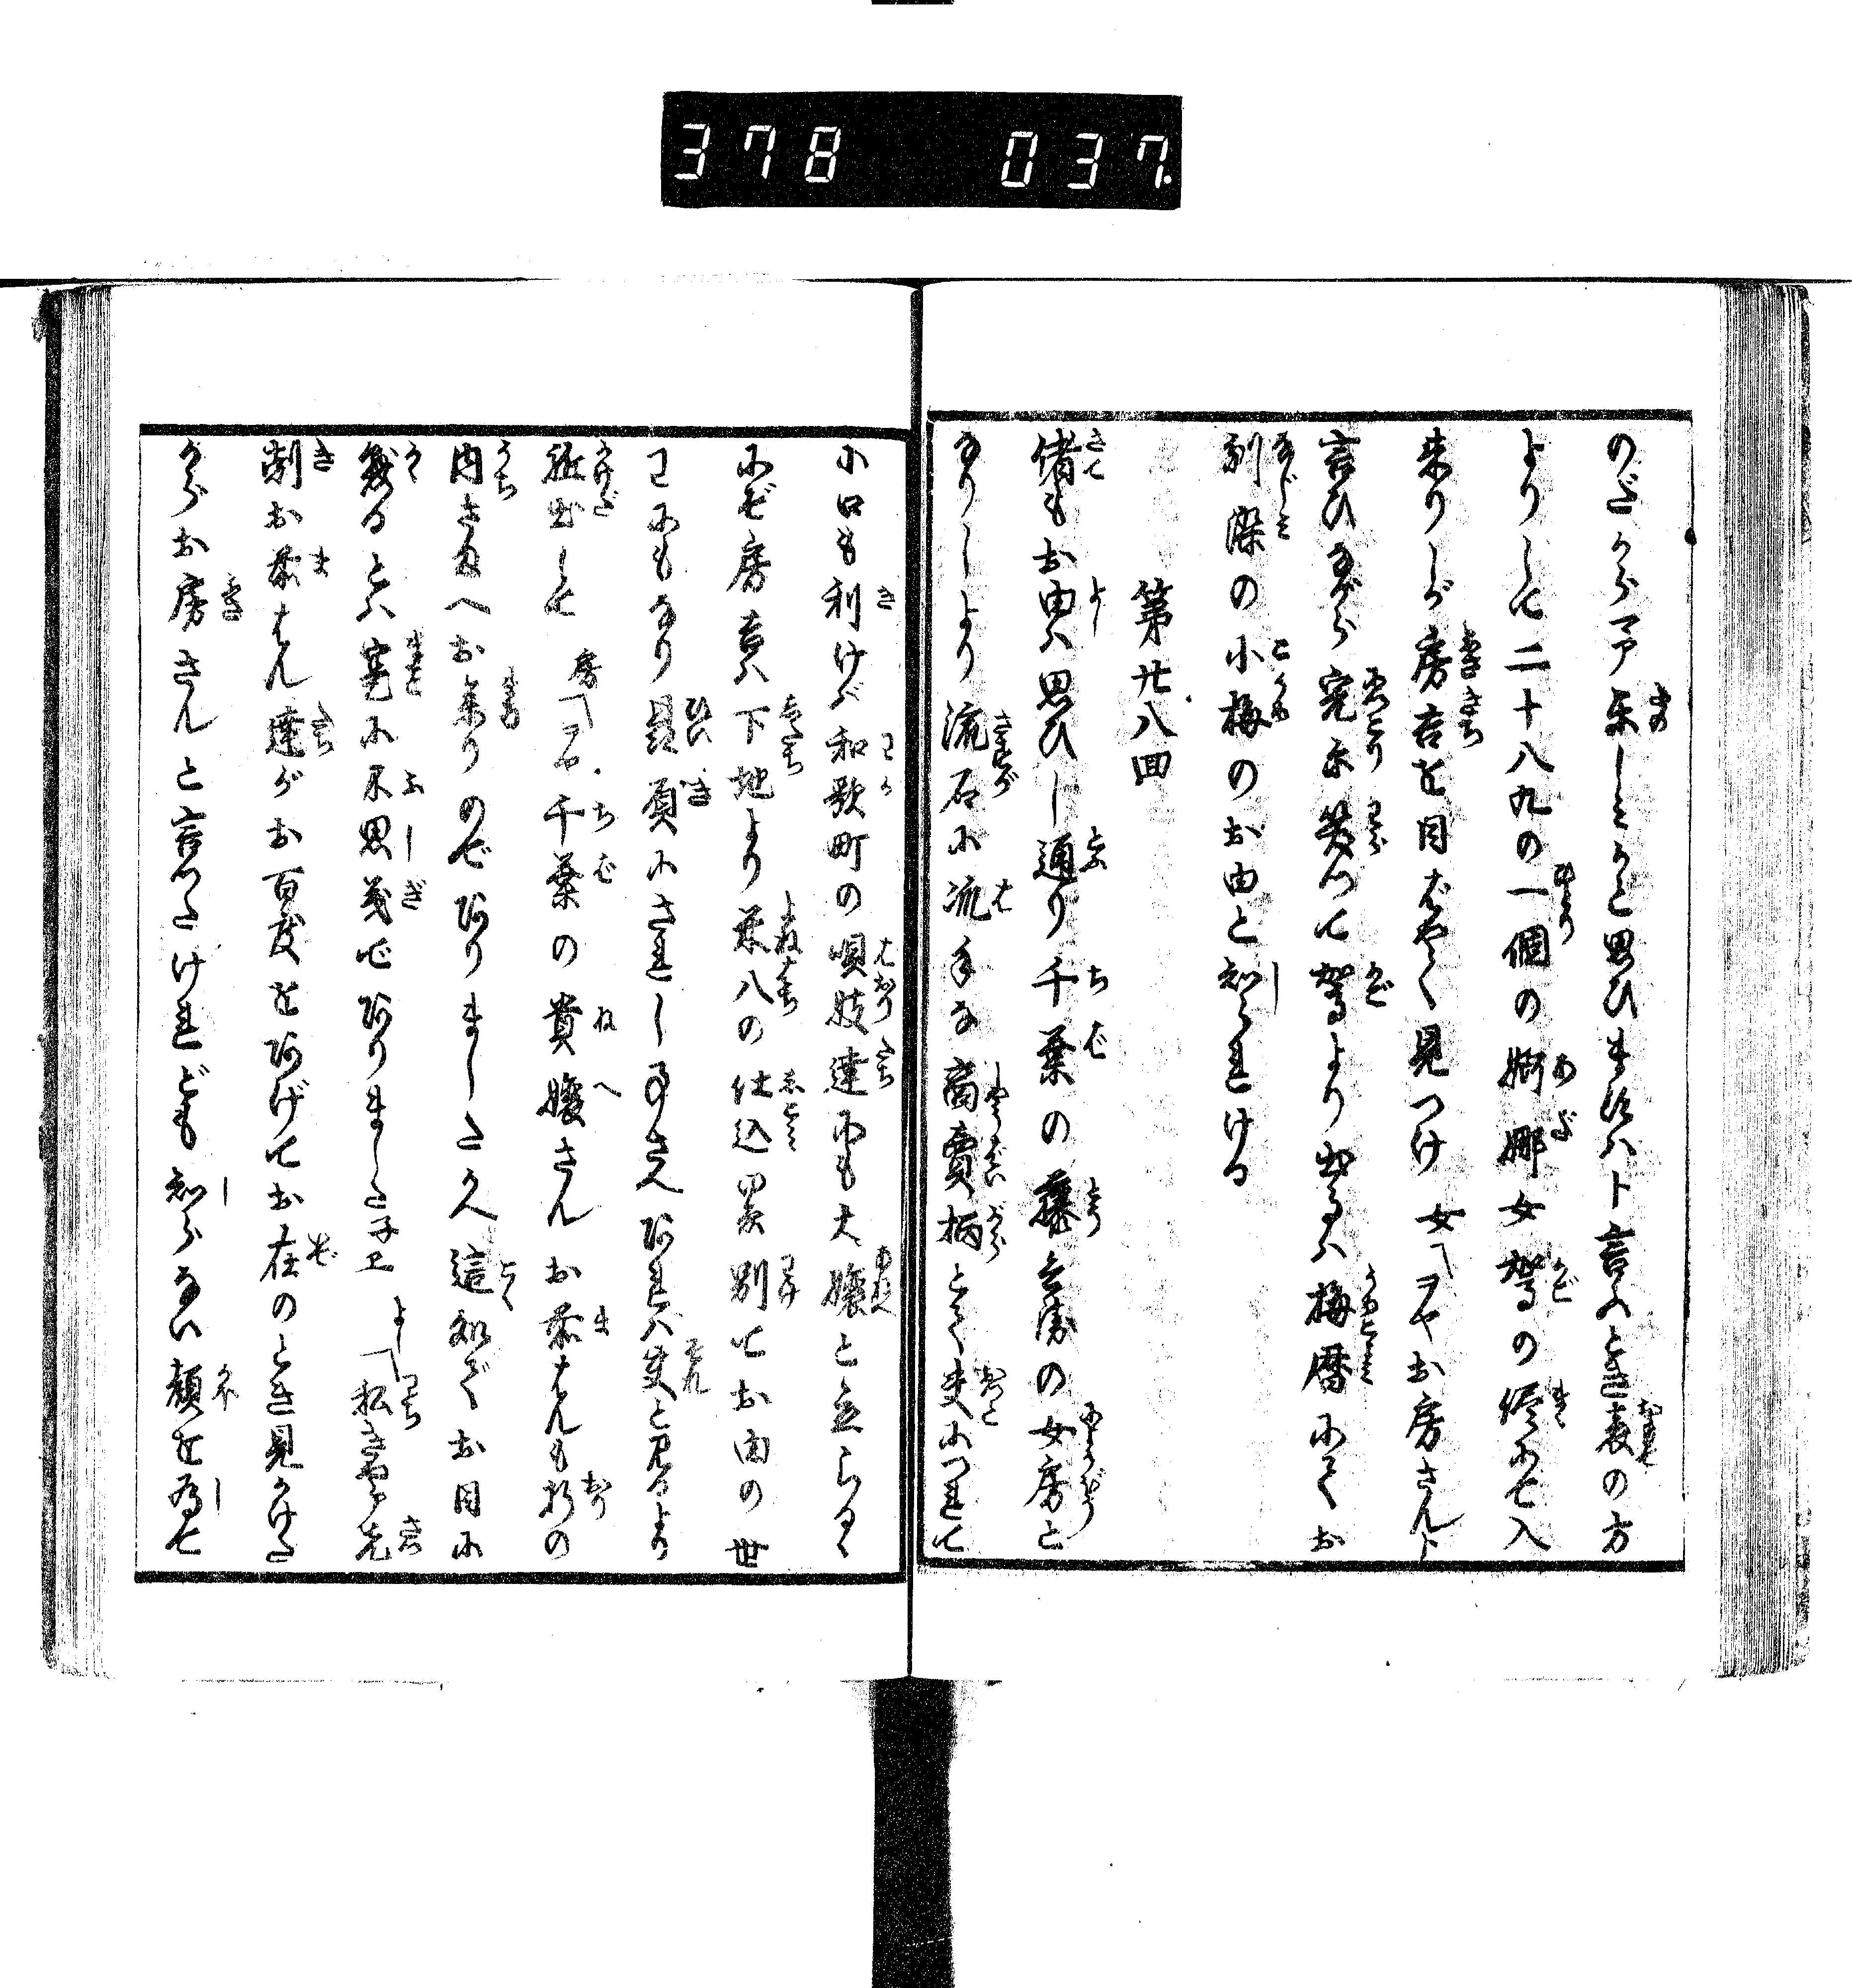 378 037
のだからマア楽しみかと思ひますはハト言ふとき表の方
よりして二十八九の一個の婀娜女駕の侭にて入
来りしが房吉を目ばやく見つけ女「ヲヤお房さんト
言ひながら完尓笑つて駕より出るハ梅暦にてお
馴染の小梅のお由と知られける
第廿八回
偖もお由ハ思ひし通り千葉の藤兵衛の女房と
なりしより流石に流行な商賣柄とて夫につれて
小口も利けバ和歌町の唄妓達にも大嬢と立らるゝ
にぞ房吉ハ下地より米八の仕込畧別てお由の世
ワにもなり贔屓にされし事さへあれバ夫と見るより
駈出して房「ヲヤ千葉の貴嬢さんお恭さんも折の
内さまへお参りのぞありましたかへ這処でお目に
懸るとハ寔に不思義でありましたネエよし「私きやア先
剋お恭さん達がお百度をあげてお在のとき見かけた
からお房さんと言つたけれども知らない顔を為て